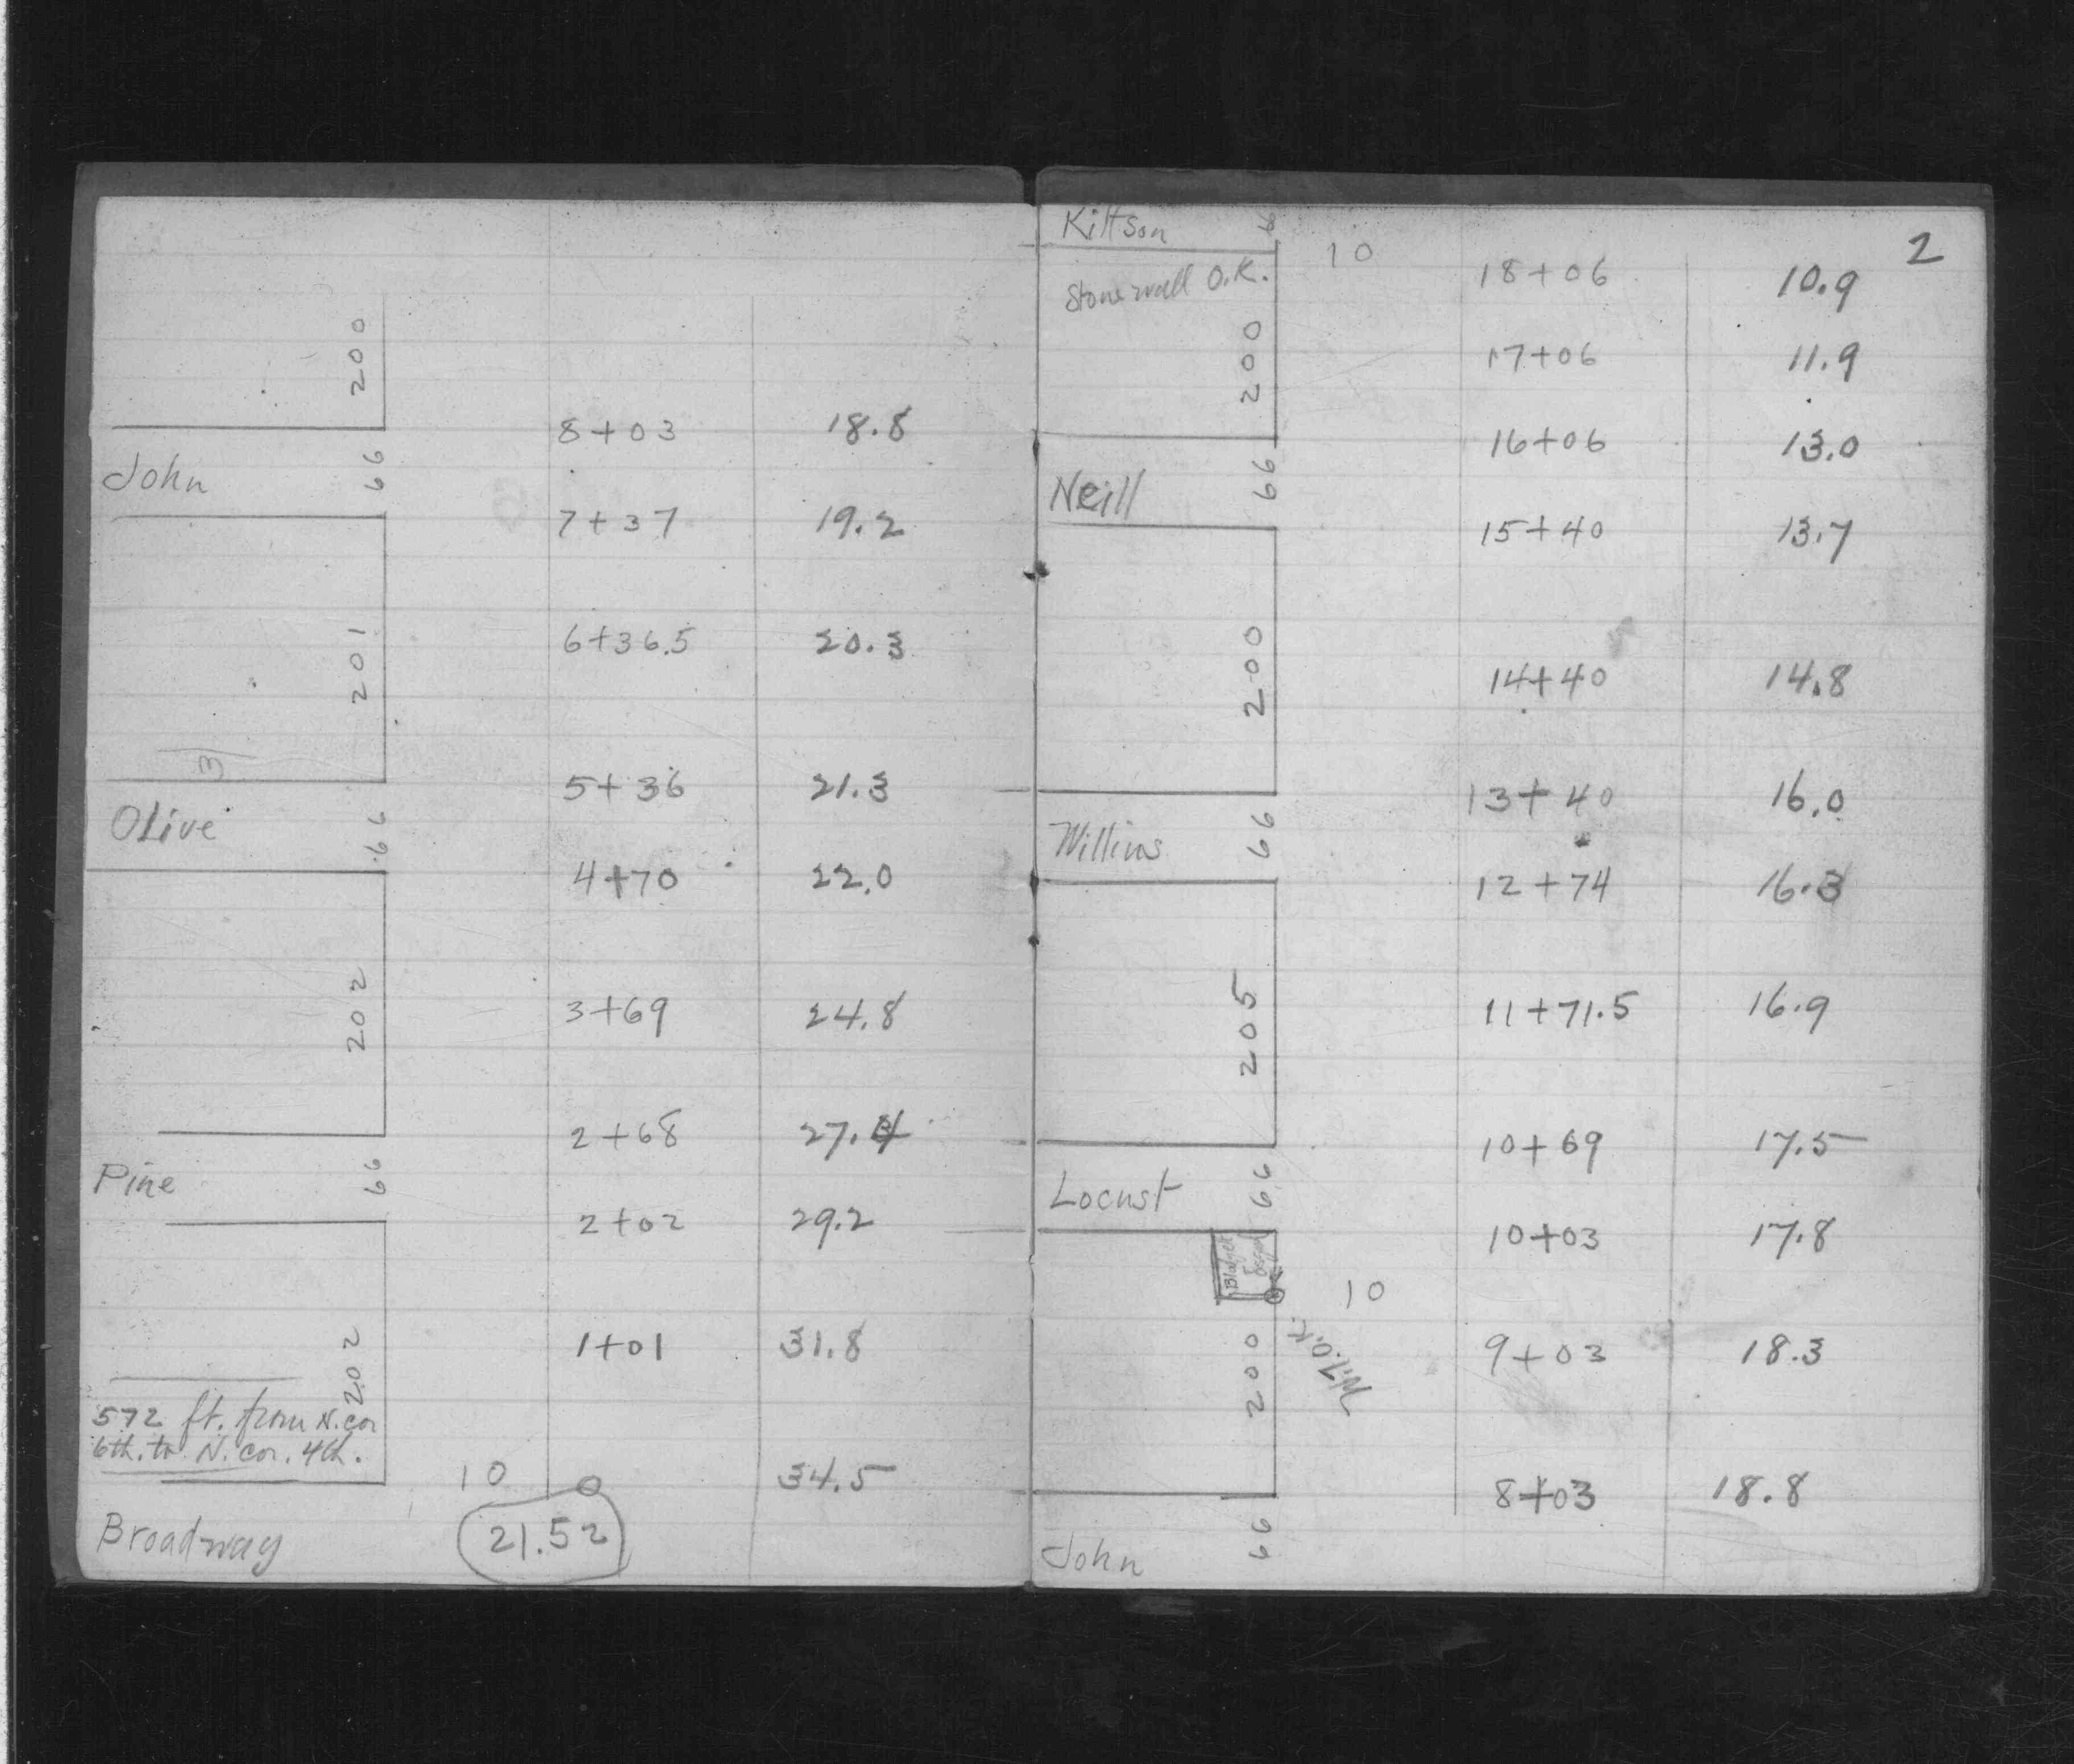 200
8+03 18.8
John 66
7+37 19.2
201
6+36.5 20.3
3
5+36 21.3
Olive 66
4+70 22.0
202
3+69 24.8
2+68 27.4
Pine 66
2+02 29.2
202
1+01 31.8
572 ft. from N. cor
6th. to N. cor. 4th.
10 0 34.5
Broadway
21.52
2
Kittson 66
10 18+06 10.9
Stone wall O.K.
200
17+06 11.9
16+06 13.0
Neill 66
15+40 13.7
200
14+40 14.8
13+40 16.0
Willius 66
12+74 16.3
205
11+71.5 16.9
10+69 17.5
Locust 66
10+03 17.8
10
O.K.
200
9+03 18.3
8+03 18.8
John 66